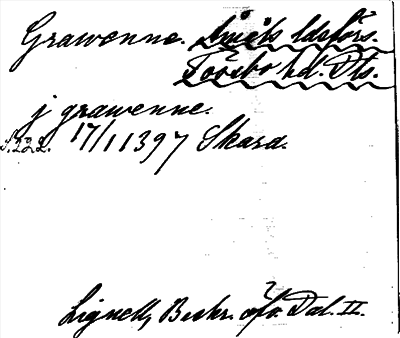 Grawenne. Åmåls landsförs.
Tössbo hd. Dls.
j grawenne.
S. 222. 17/1 1397 Skara.
Lignell, Beskr. öfv. Dal. II.